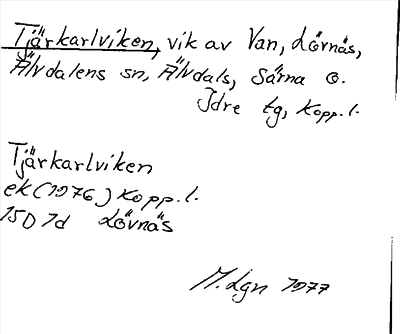 Tjärkarlviken, vik av Van, Lövnäs,
Älvdalens sn, Älvdals, Särna o.
Idre tg, Kopp.l.
Tjärkarlviken
ek (1976) Kopp.l.
15D 1d Lövnäs
M.Lgn 1977